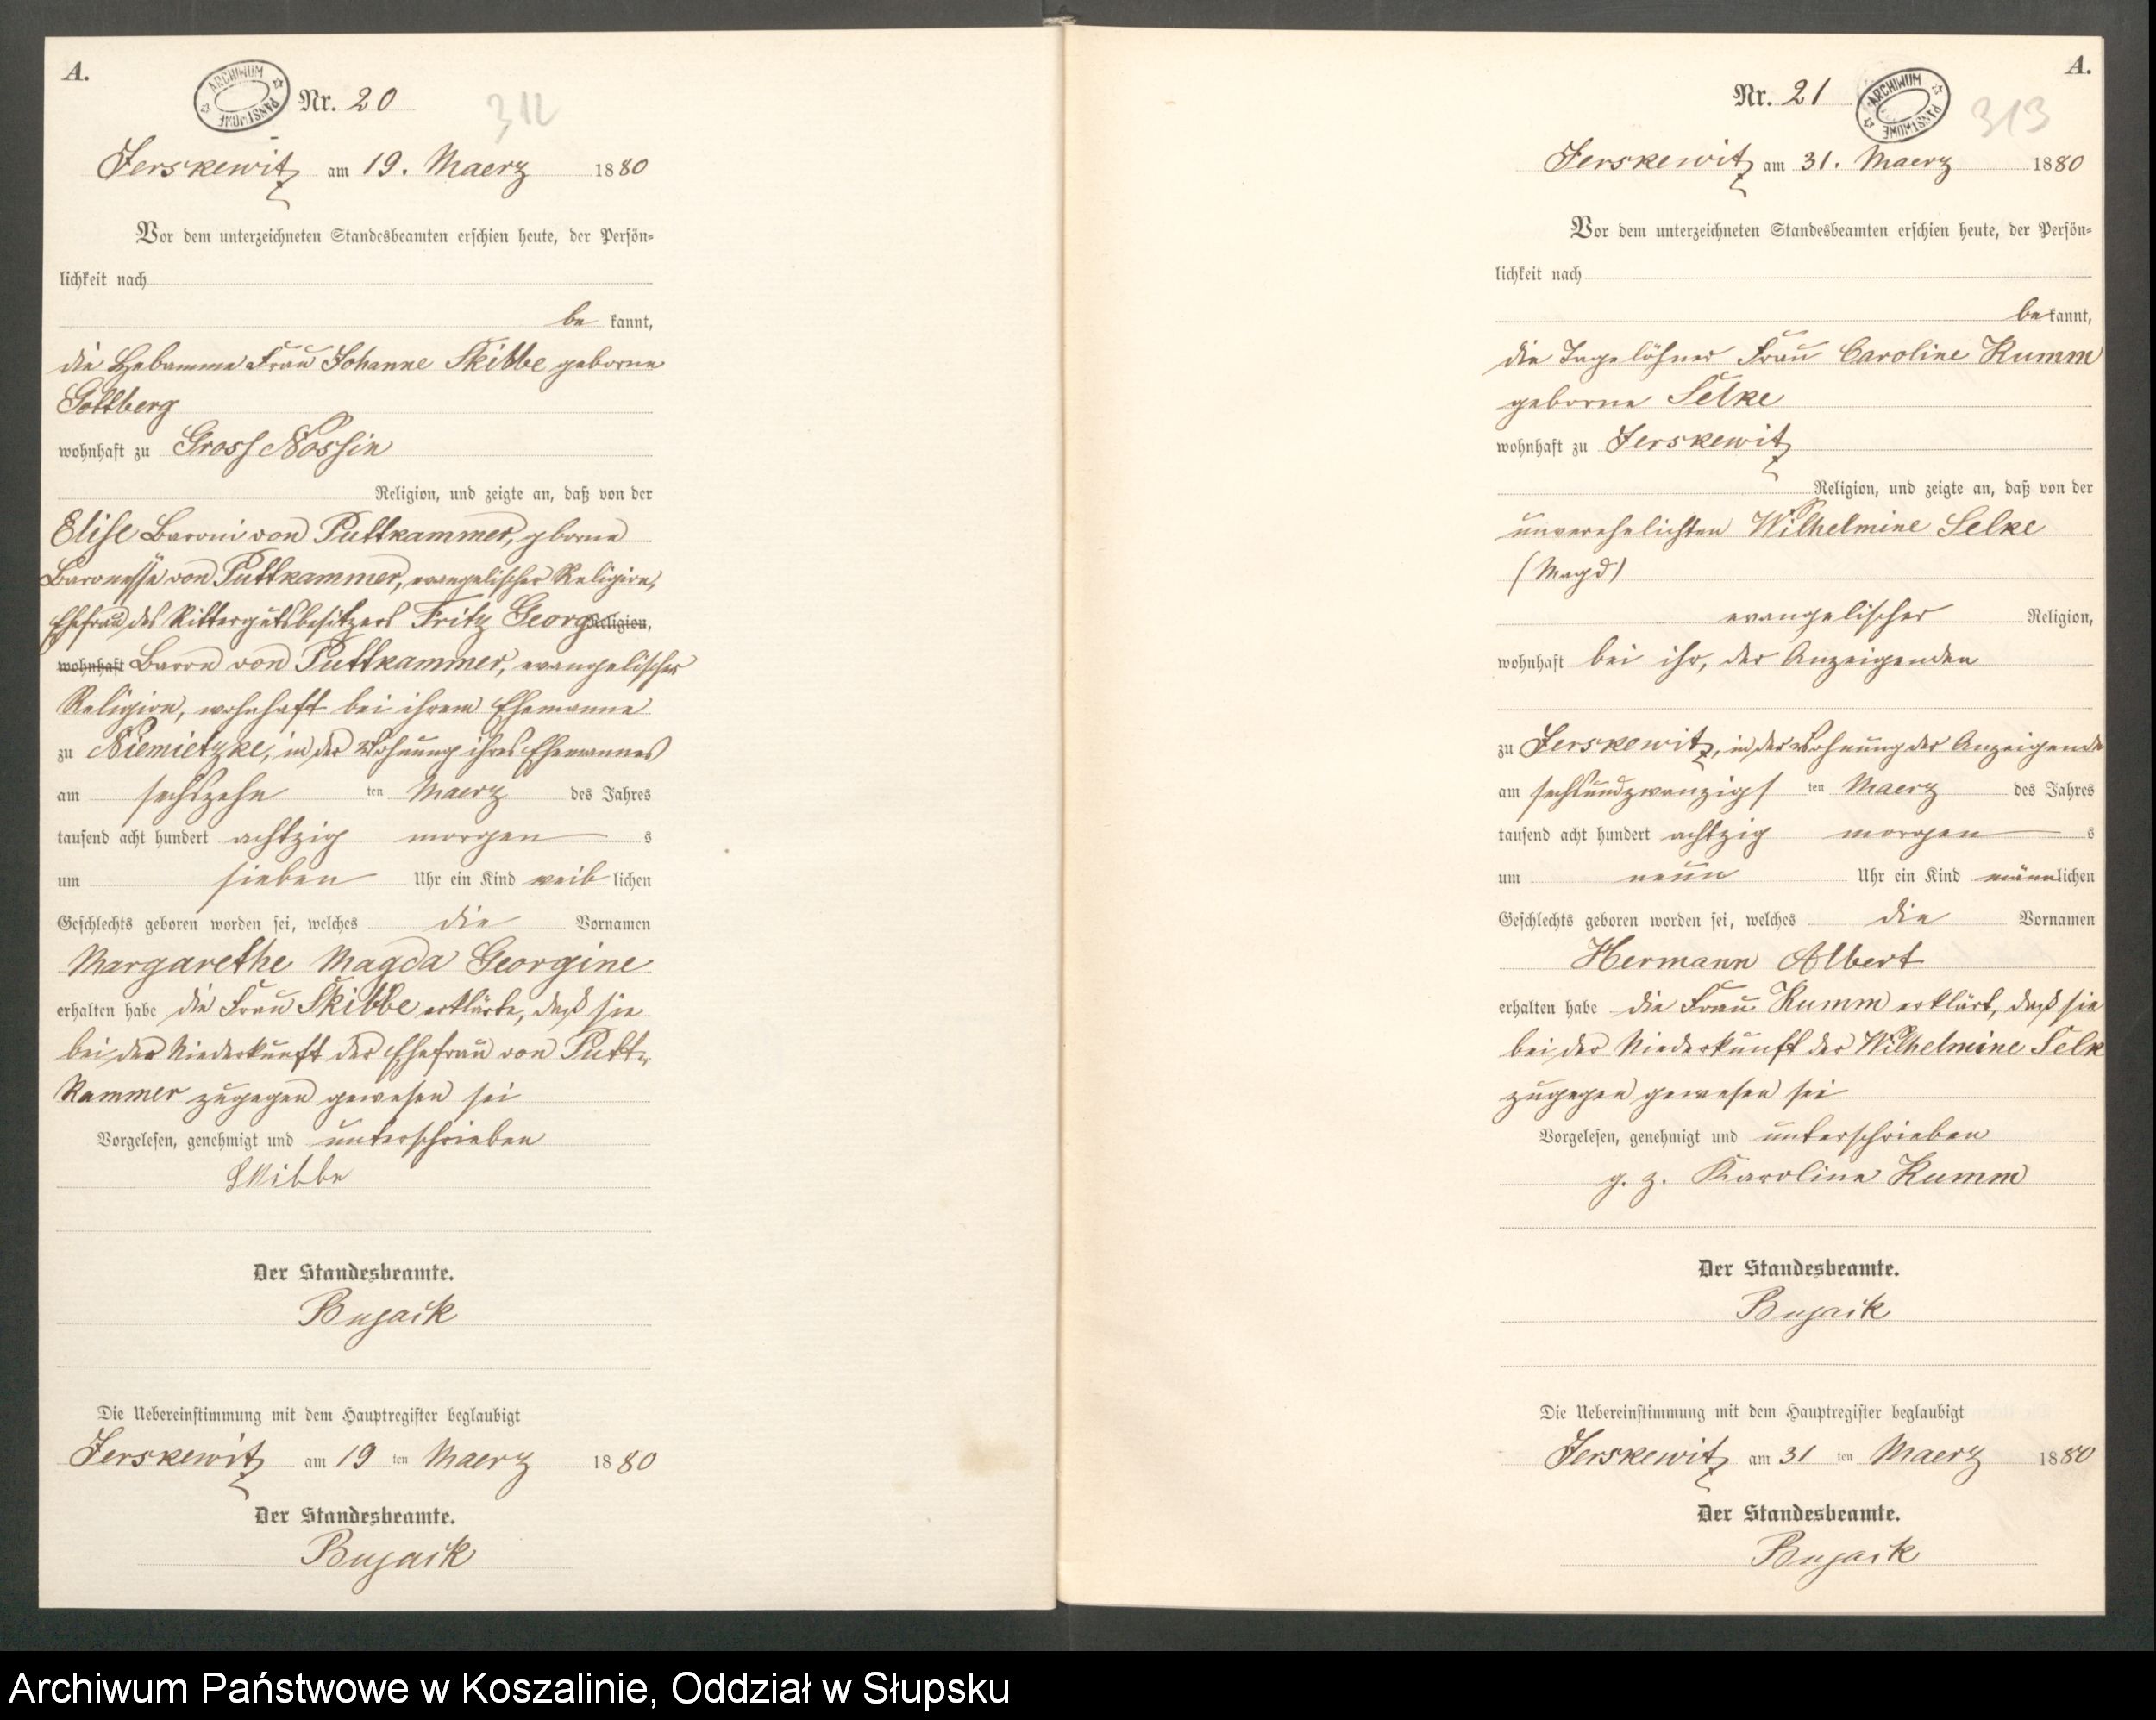 A.
ARCHIWUM PAŃSTWOWE
Nr. 20
312
Jerskewitz am 19. Maerz 1880
Vor dem unterzeichneten Standesbeamten erschien heute, der Persön-
lichkeit nach
be kannt,
die Hebamme Frau Johanne Skibbe geborne
Gottberg
wohnhaft zu Gross Nossin
Religion, und zeigte an, daß von der
Elise Baronin von Puttkammer, geborne
Baronesse von Puttkammer, evangelischer Religion,
Ehefrau des Rittergutsbesitzers Fritz Georg Religion,
wohnhaft Baron von Puttkammer, evangelischer
Religion, wohnhaft bei ihrem Ehemanne
zu Niemietzke, in der Wohnung ihres Ehemannes
am sechszehn ten Maerz des Jahres
tausend acht hundert achtzig morgen s
um sieben Uhr ein Kind weib lichen
Geschlechts geboren worden sei, welches die Vornamen
Margarethe Magda Georgine
erhalten habe die Frau Skibbe erklärte, daß sie
bei der Niederkunft der Ehefrau von Putt-
kammer zugegen gewesen sei
Vorgelesen, genehmigt und unterschrieben
Skibbe
Der Standesbeamte.
Bujack
Die Uebereinstimmung mit dem Hauptregister beglaubigt
Jerskewitz am 19 ten Maerz 1880
Der Standesbeamte.
Bujack
A.
Nr. 21
ARCHIWUM PAŃSTWOWE
313
Jerskewitz am 31. Maerz 1880
Vor dem unterzeichneten Standesbeamten erschien heute, der Persön-
lichkeit nach
be kannt,
die Tagelöhner Frau Caroline Kumm
geborne Selke
wohnhaft zu Jerskewitz
Religion, und zeigte an, daß von der
unverehelichten Wilhelmine Selke
(Magd)
evangelischer Religion,
wohnhaft bei ihr, der Anzeigenden
zu Jerskewitz, in der Wohnung der Anzeigende
am sechsundzwanzigs ten Maerz des Jahres
tausend acht hundert achtzig morgen s
um neun Uhr ein Kind männlichen
Geschlechts geboren worden sei, welches die Vornamen
Hermann Albert
erhalten habe die Frau Kumm erklärt, daß sie
bei der Niederkunft der Wilhelmine Selk
zugegen gewesen sei
Vorgelesen, genehmigt und unterschrieben
g. z. Karoline Kumm
Der Standesbeamte.
Bujack
Die Uebereinstimmung mit dem Hauptregister beglaubigt
Jerskewitz am 31 ten Maerz 1880
Der Standesbeamte.
Bujack
Archiwum Państwowe w Koszalinie, Oddział w Słupsku